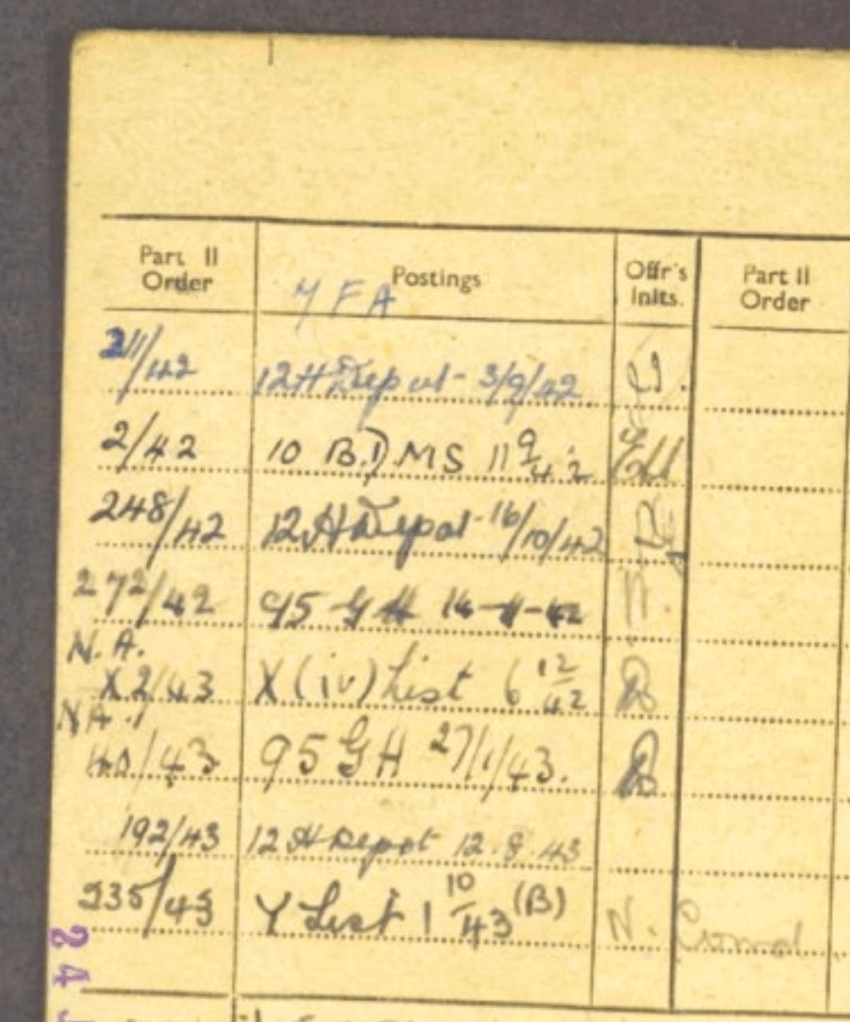 Part II Order Postings Offr's Inits. Part II Order
7 FA
211/42 12 H Depot - 3/9/42
2/42 10 B.D MS 11 9/42
248/42 12 H Depot - 16/10/42
272/42 95 GH 14-11-42
N.A.
X2/43 X(iv) List 6 12/42
NA.1
40/43 95 GH 27/1/43.
192/43 12 H Depot 12.8.43
235/43 Y List 1 10/43 (B) N. Comd
24 J